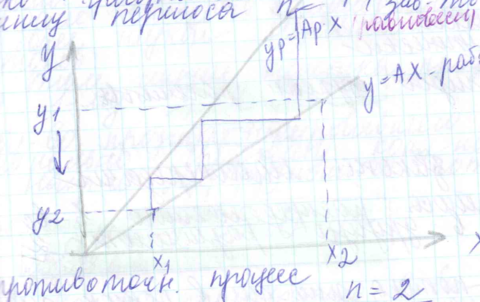 переноса n
yp=Ap·X (равновесн
y
y=AX - рабо
y1
y2
x1
x2
x
противоточн. процесс n=2